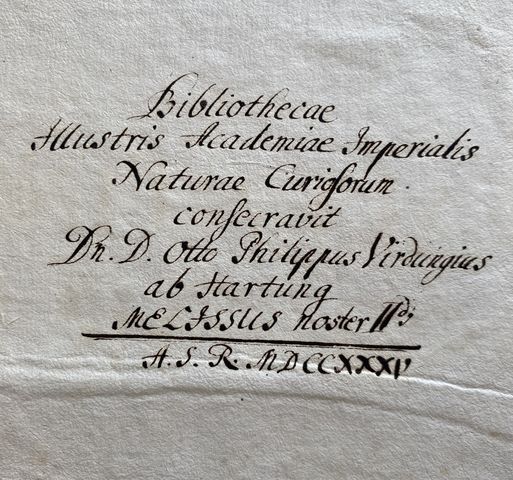 Bibliothecae
Illustris Academiae Imperialis
Naturae Curiosorum.
consecravit
Dn. D. Otto Philippus Virdungius
ab Hartung
MELISSUS noster IIdꝰ
A. S. R. MDCCXXXV